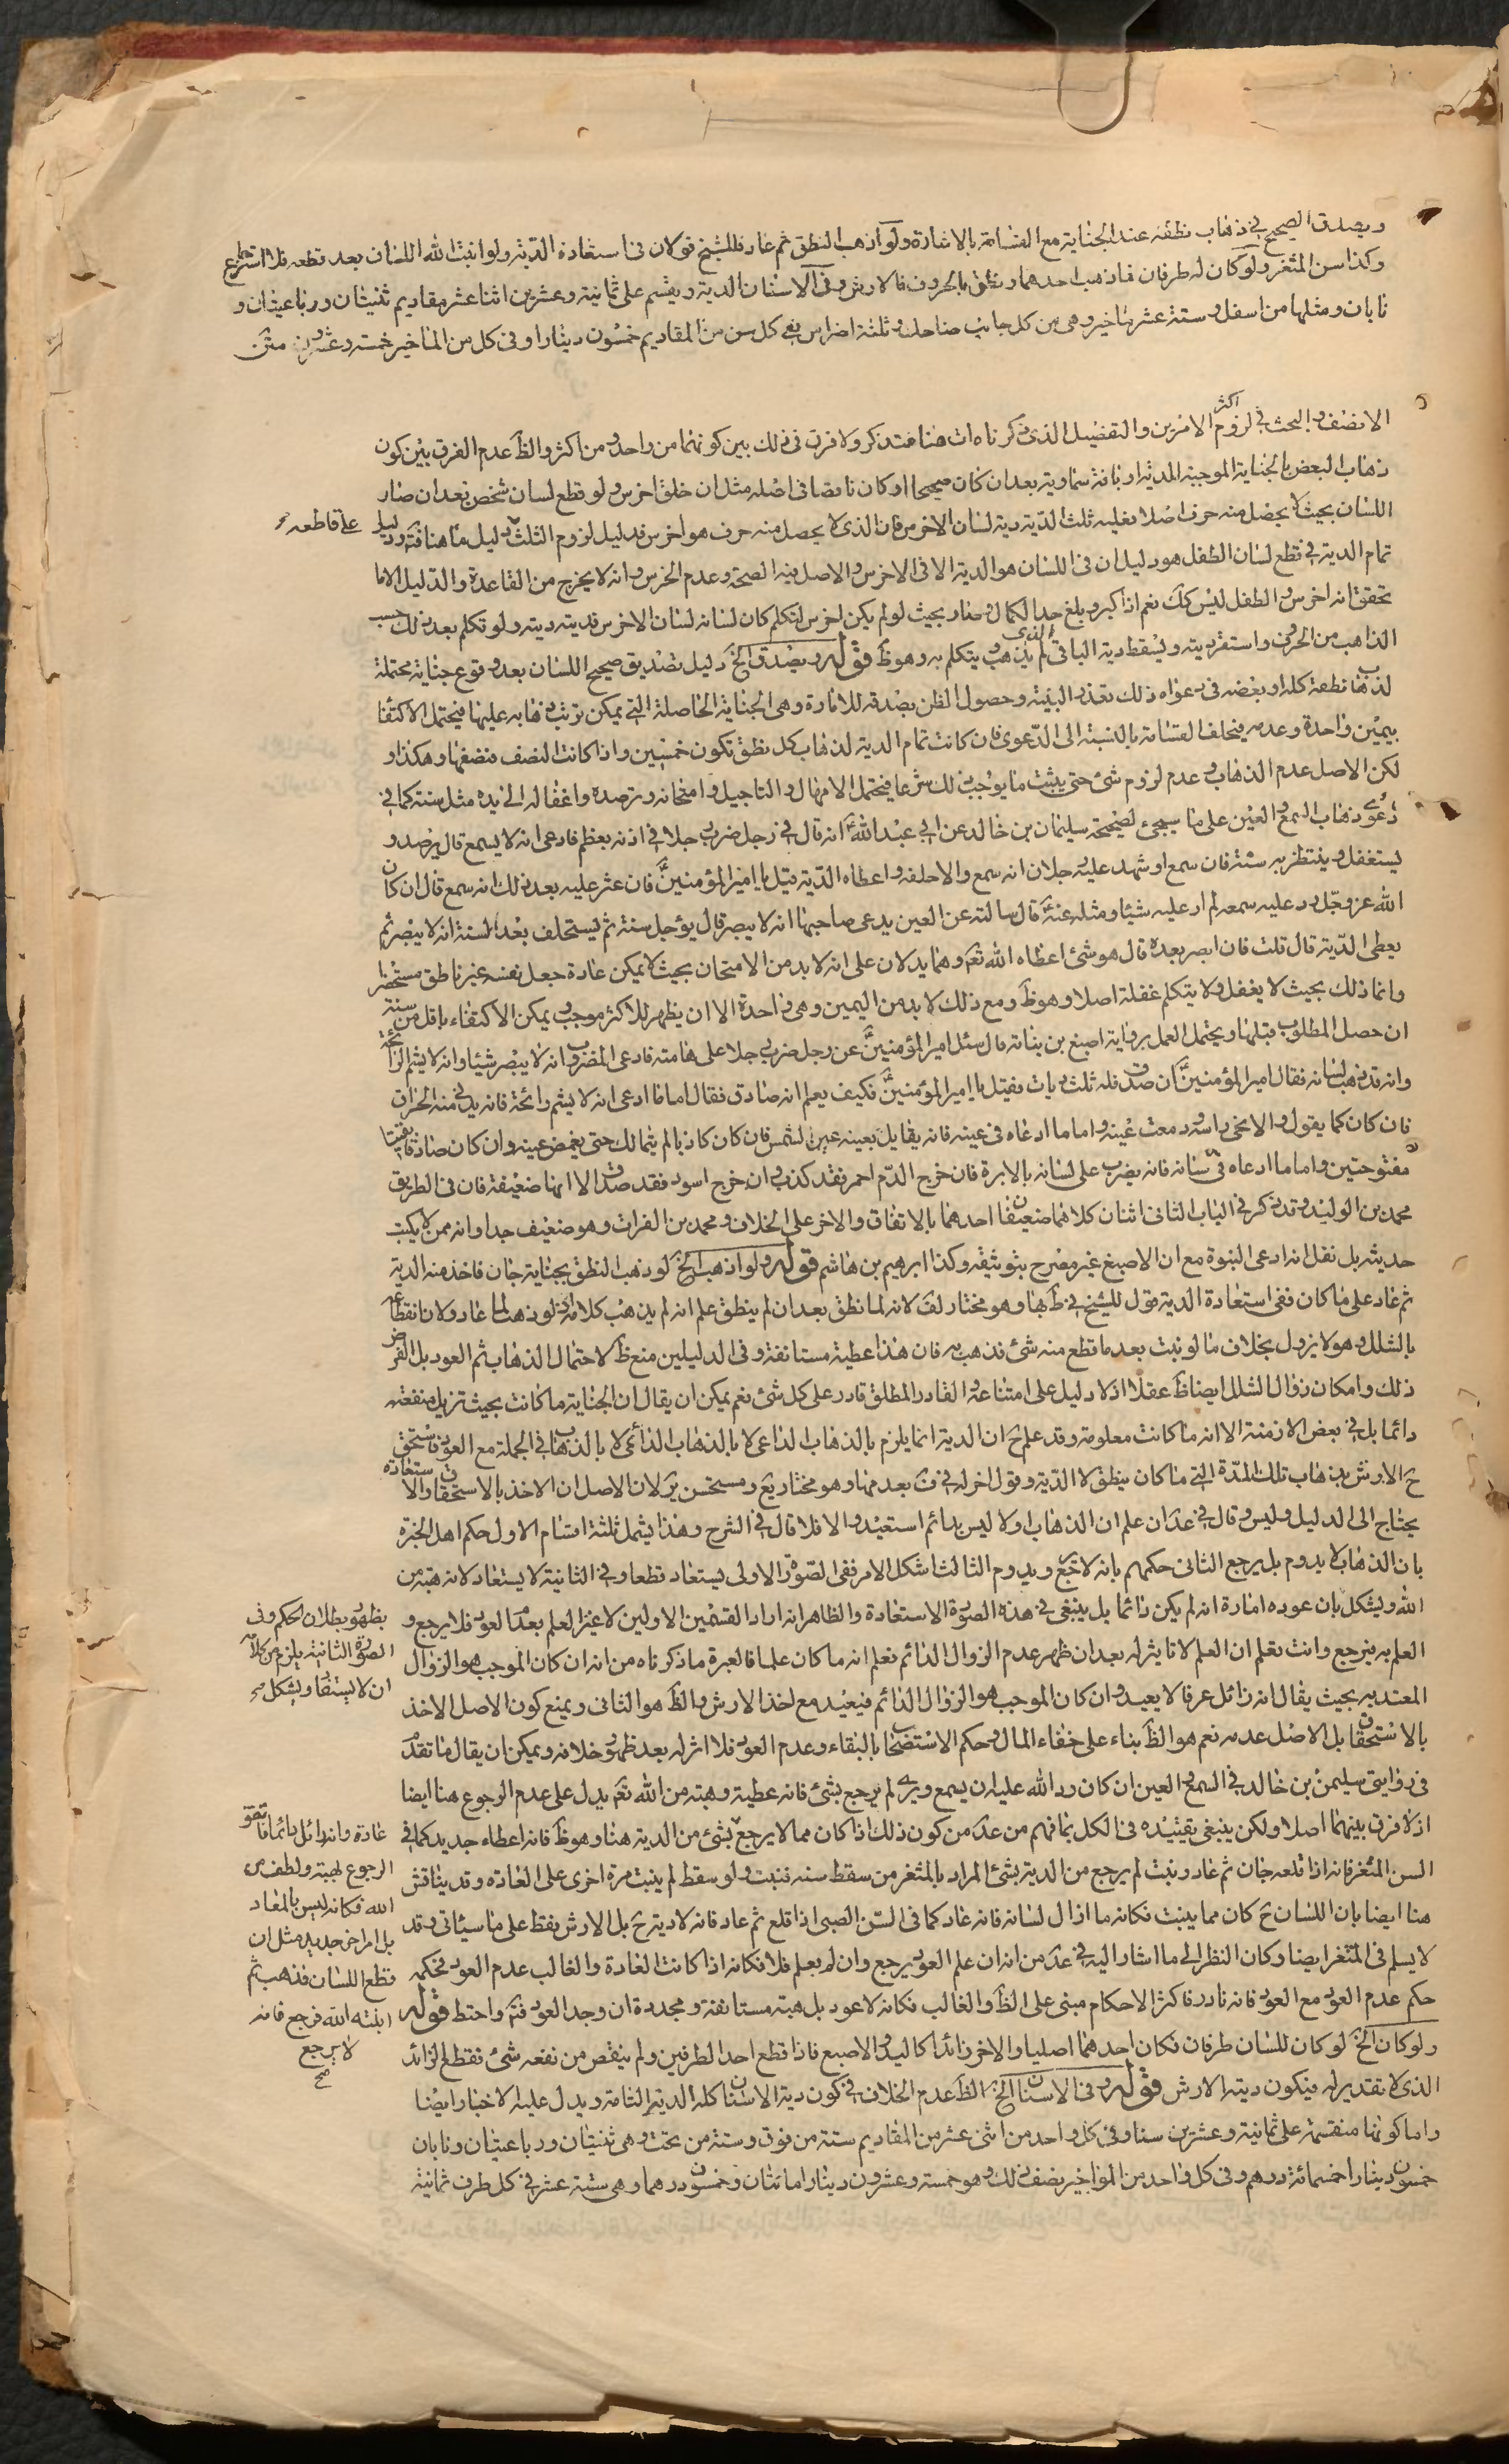 ويصدق الصحيح في ذهاب نطقه عند الجناية مع القسامة بالاشارة ولو اذهب النطق ثم عاد فللشيخ قولان في استعادة الدية ولو انبت الله اللسان بعد قطعه فلا استرجاع
وكذا سن المثغر ولو كان له طرفان فاذهب احدهما ونطق بالحروف فالارش وفي الاسنان الدية ويقسم على ثمانية وعشرين اثنا عشر مقاديم ثنيتان ورباعيتان و
نابان ومثلها من اسفل وستة عشر مآخير وهي من كل جانب ضاحك وثلثة اضراس ففي كل سن من المقاديم خمسون دينارا وفي كل من المآخير خمسة وعشرون متن
الانصف والبحث في لزوم اكثر الامرين والتفصيل الذي ذكرناه ات هنا فتذكر ولا فرق في ذلك بين كونهما من واحد ومن اكثر والظ عدم الفرق بين كون
ذهاب البعض بالجناية الموجبة للدية او بافة سماوية بعد ان كان صحيحا او كان ناقصا في اصله مثل ان خلق اخرس ولو قطع لسان شخص بعد ان صار
اللسان بحيث لا يحصل منه حرف اصلا فعليه ثلث الدية دية لسان الاخرس فان الذي لا يحصل منه حرف هو اخرس فدليل لزوم الثلث دليل ما هنا فتم ودليل
على قاطعه
تمام الدية في قطع لسان الطفل هو دليل ان في اللسان هو الدية الا في الاخرس والاصل فيه الصحة وعدم الخرس وانه لا يخرج من القاعدة والدليل الا ما
تحقق انه اخرس والطفل ليس كك نعم اذا كبر وبلغ حد الكمال وصار بحيث لو لم يكن اخرس لتكلم كان لسانه لسان الاخرس فديته ديته ولو تكلم بعد ذلك حسب
الذاهب من الحروف واستقر ديته ويسقط دية الباقي الذي لم يذهب ويتكلم به وهو ظ قوله ويصدق الخ دليل تصديق صحيح اللسان بعد وقوع جناية محتملة
لذهاب نطقه كله او بعضه في دعواه ذلك تعذر البينة وحصول الظن بصدقه للامارة وهي الجناية الحاصلة التي يمكن ترتب ذهابه عليها فيحتمل الاكتفاء
بيمين واحدة وعدمه فيحلف القسامة بالنسبة الى الدعوى فان كانت تمام الدية لذهاب كل نطق تكون خمسين واذا كانت النصف فنصفها وهكذا و
لكن الاصل عدم الذهاب وعدم لزوم شئ حتى يثبت ما يوجب ذلك شرعا فيحتمل الامهال والتاجيل وامتحانه وترصده واغفاله الى مدة مثل سنة كما في
دعوى ذهاب السمع والعين على ما سيجئ لصحيحة سليمان بن خالد عن ابي عبد الله ع انه قال في رجل ضرب رجلا في اذنه بعظم فادعى انه لا يسمع قال يترصد و
يستغفل وينتظر به سنة فان سمع او شهد عليه رجلان انه سمع والا حلفه واعطاه الدية قيل يا امير المؤمنين ع فان عثر عليه بعد ذلك انه سمع قال ان كان
الله عز وجل رد عليه سمعه لم ار عليه شيئا ومثله عنه ع قال سالته عن العين يدعى صاحبها انه لا يبصر قال يؤجل سنة ثم يستحلف بعد السنة انه لا يبصر ثم
يعطى الدية قال قلت فان ابصر بعده قال هو شئ اعطاه الله تعم وهما يدلان على انه لا بد من الامتحان بحيث لا يمكن عادة جعل نفسه غير ناطق مستحضر
وانما ذلك بحيث لا يغفل ولا يتكلم غفلة اصلا وهو ظ ومع ذلك لا بد من اليمين وهي واحدة الا ان يظهر للاكثر موجب ويمكن الاكتفاء باقل من سنة
ان حصل المطلوب قبلها ويحتمل العمل برواية اصبغ بن نباتة قال سئل امير المؤمنين ع عن رجل ضرب رجلا على هامته فادعى المضروب انه لا يبصر شيئا وانه لا يشم الرائحة
وانه قد ذهب لسانه فقال امير المؤمنين ع ان صدق فله ثلث ديات فقيل يا امير المؤمنين ع فكيف يعلم انه صادق فقال اما ما ادعى انه لا يشم رائحة فانه يدنى منه الحراق
فان كان كما يقول والا نحى راسه ودمعت عينه واما ما ادعاه في عينه فانه يقابل بعينه عين الشمس فان كان كاذبا لم يتمالك حتى يغمض عينه وان كان صادقا بقيتا
مفتوحتين واما ما ادعاه في لسانه فانه يضرب على لسانه بالابرة فان خرج الدم احمر فقد كذب وان خرج اسود فقد صدق الا انها ضعيفة فان في الطريق
محمد بن الوليد وقد ذكر في الباب الثاني اثنان كلاهما ضعيفان احدهما بالاتفاق والاخر على الخلاف ومحمد بن الفرات وهو ضعيف جدا وانه ممن لا يكتب
حديثه بل نقل انه ادعى النبوة مع ان الاصبغ غير مصرح بتوثيقه وكذا ابرهيم بن هاشم قوله ولو اذهب الخ لو ذهب النطق بجناية جان فاخذ منه الدية
ثم عاد على ما كان ففي استعادة الدية قول للشيخ في ط بها وهو مختار لف لانه لما نطق بعد ان لم ينطق علم انه لم يذهب كلامه اذ لو ذهب لما عاد ولان انقطاعه
بالشلل وهو لا يزول بخلاف ما لو نبت بعد ما قطع منه شئ فذهب به فان هذا عطية مستانفة وفي الدليلين منع ظ لاحتمال الذهاب ثم العود بل الفرض
ذلك وامكان زوال الشلل ايضا ظ عقلا اذ لا دليل على امتناعه والقادر المطلق قادر على كل شئ نعم يمكن ان يقال ان الجناية ما كانت بحيث تزيل منفعته
دائما بل في بعض الازمنة الا انه ما كانت معلومة وقد علم ح ان الدية انما يلزم بالذهاب الداعي لا بالذهاب الدائمي لا بالذهاب في الجملة مع العود فاستحق
ح الارش بذهاب تلك المدة التي ما كان ينطق لا الدية وقول اخر له في ف بعدمها وهو مختار يع ومستحسن ير لان الاصل ان الاخذ بالاستحقاق والاستعادة
يحتاج الى الدليل وليس وقال في عد ان علم ان الذهاب اولا ليس بدائم استعيد والا فلا قال في الشرح وهذا يشمل ثلثة اقسام الاول حكم اهل الخبرة
بان الذهاب لا يدوم بل يرجع الثاني حكمهم بانه لا يرجع ويدوم الثالث اشكل الامر ففي الصورة الاولى يستعاد قطعا وفي الثانية لا يستعاد لانه هبة من
الله ويشكل بان عوده امارة انه لم يكن دائما بل ينبغي في هذه الصورة الاستعادة والظاهر انه اراد القسمين الاولين لا غير العلم بعدم العود فلا يرجع و
العلم به فيرجع وانت تعلم ان العلم لا تاثير له بعد ان ظهر عدم الزوال الدائم نعلم انه ما كان علما فالعبرة ما ذكرناه من انه ان كان الموجب هو الزوال
المعتد به بحيث يقال انه زائل عرفا لا يعيد وان كان الموجب هو الزوال الدائم فيعيد مع اخذ الارش والظ هو الثاني ويمنع كون الاصل الاخذ
بالاستحقاق بل الاصل عدمه نعم هو الظ بناء على خفاء المال وحكم الاستصحاب بالبقاء وعدم العود فلا اثر له بعد ظهور خلافه ويمكن ان يقال ما تقدم
في رواية سليمن بن خالد في السمع والعين ان كان رد الله عليه ان يسمع ويرى لم يرجع بشئ فانه عطية وهبة من الله تعم يدل على عدم الرجوع هنا ايضا
اذ لا فرق بينهما اصلا ولكن ينبغي تقييده في الكل بما فهم من عد من كون ذلك اذا كان مما لا يرجع بشئ من الدية هنا وهو ظ فانه اعطاء جديد كما في
السن المثغر فانه اذا قلعه جان ثم عاد ونبت لم يرجع من الدية بشئ المراد بالمثغر من سقط سنه فنبت ولو سقط لم ينبت مرة اخرى على العادة وقد يناقش
هنا ايضا بان اللسان ح كان مما ينبت فكانه ما ازال لسانه فانه عاد كما في السن الصبي اذا قلع ثم عاد فانه لا دية ح بل الارش فقط على ما سياتي وقد
لا يسلم في المثغر ايضا وكان النظر الى ما اشار اليه في عد من انه ان علم العود يرجع وان لم يعلم فلا فكانه اذا كانت العادة والغالب عدم العود فحكمه
حكم عدم العود مع العود فانه نادر فاكثر الاحكام مبنى على الظ والغالب فكانه لا عود بل هبة مستانفة ومجددة ان وجد العود فتم واحتط قوله
ولو كان الخ لو كان للسان طرفان فكان احدهما اصليا والاخر زائدا كاليد والاصبع فاذا قطع احد الطرفين ولم ينقص من نفعه شئ فقطع الزائد
الذي لا تقدير له فيكون ديته الارش قوله وفي الاسنان الخ الظ عدم الخلاف في كون دية الاسنان كلها الدية التامة ويدل عليه الاخبار ايضا
واما كونها منقسمة على ثمانية وعشرين سنا وفي كل واحد من اثنى عشر من المقاديم ستة من فوق وستة من تحت وهي ثنيتان ورباعيتان ونابان
خمسون دينارا خمسمائة درهم وفي كل واحد من المواخير نصف ذلك وهو خمسة وعشرون دينارا مائتان وخمسون درهما وهي ستة عشر في كل طرف ثمانية
يظهر بطلان الحكم وفي
الصورة الثانية يلزم من كلامه
ان لا يستعاد ويشكل صح
عادة وانه زائل دائما فاتفق
الرجوع لهبة ولطف من
الله فكانه ليس بالمعاد
بل امر اخر جديد مثل ان
قطع اللسان فذهب ثم
انبته الله فرجع فانه
لا يرجع
صح